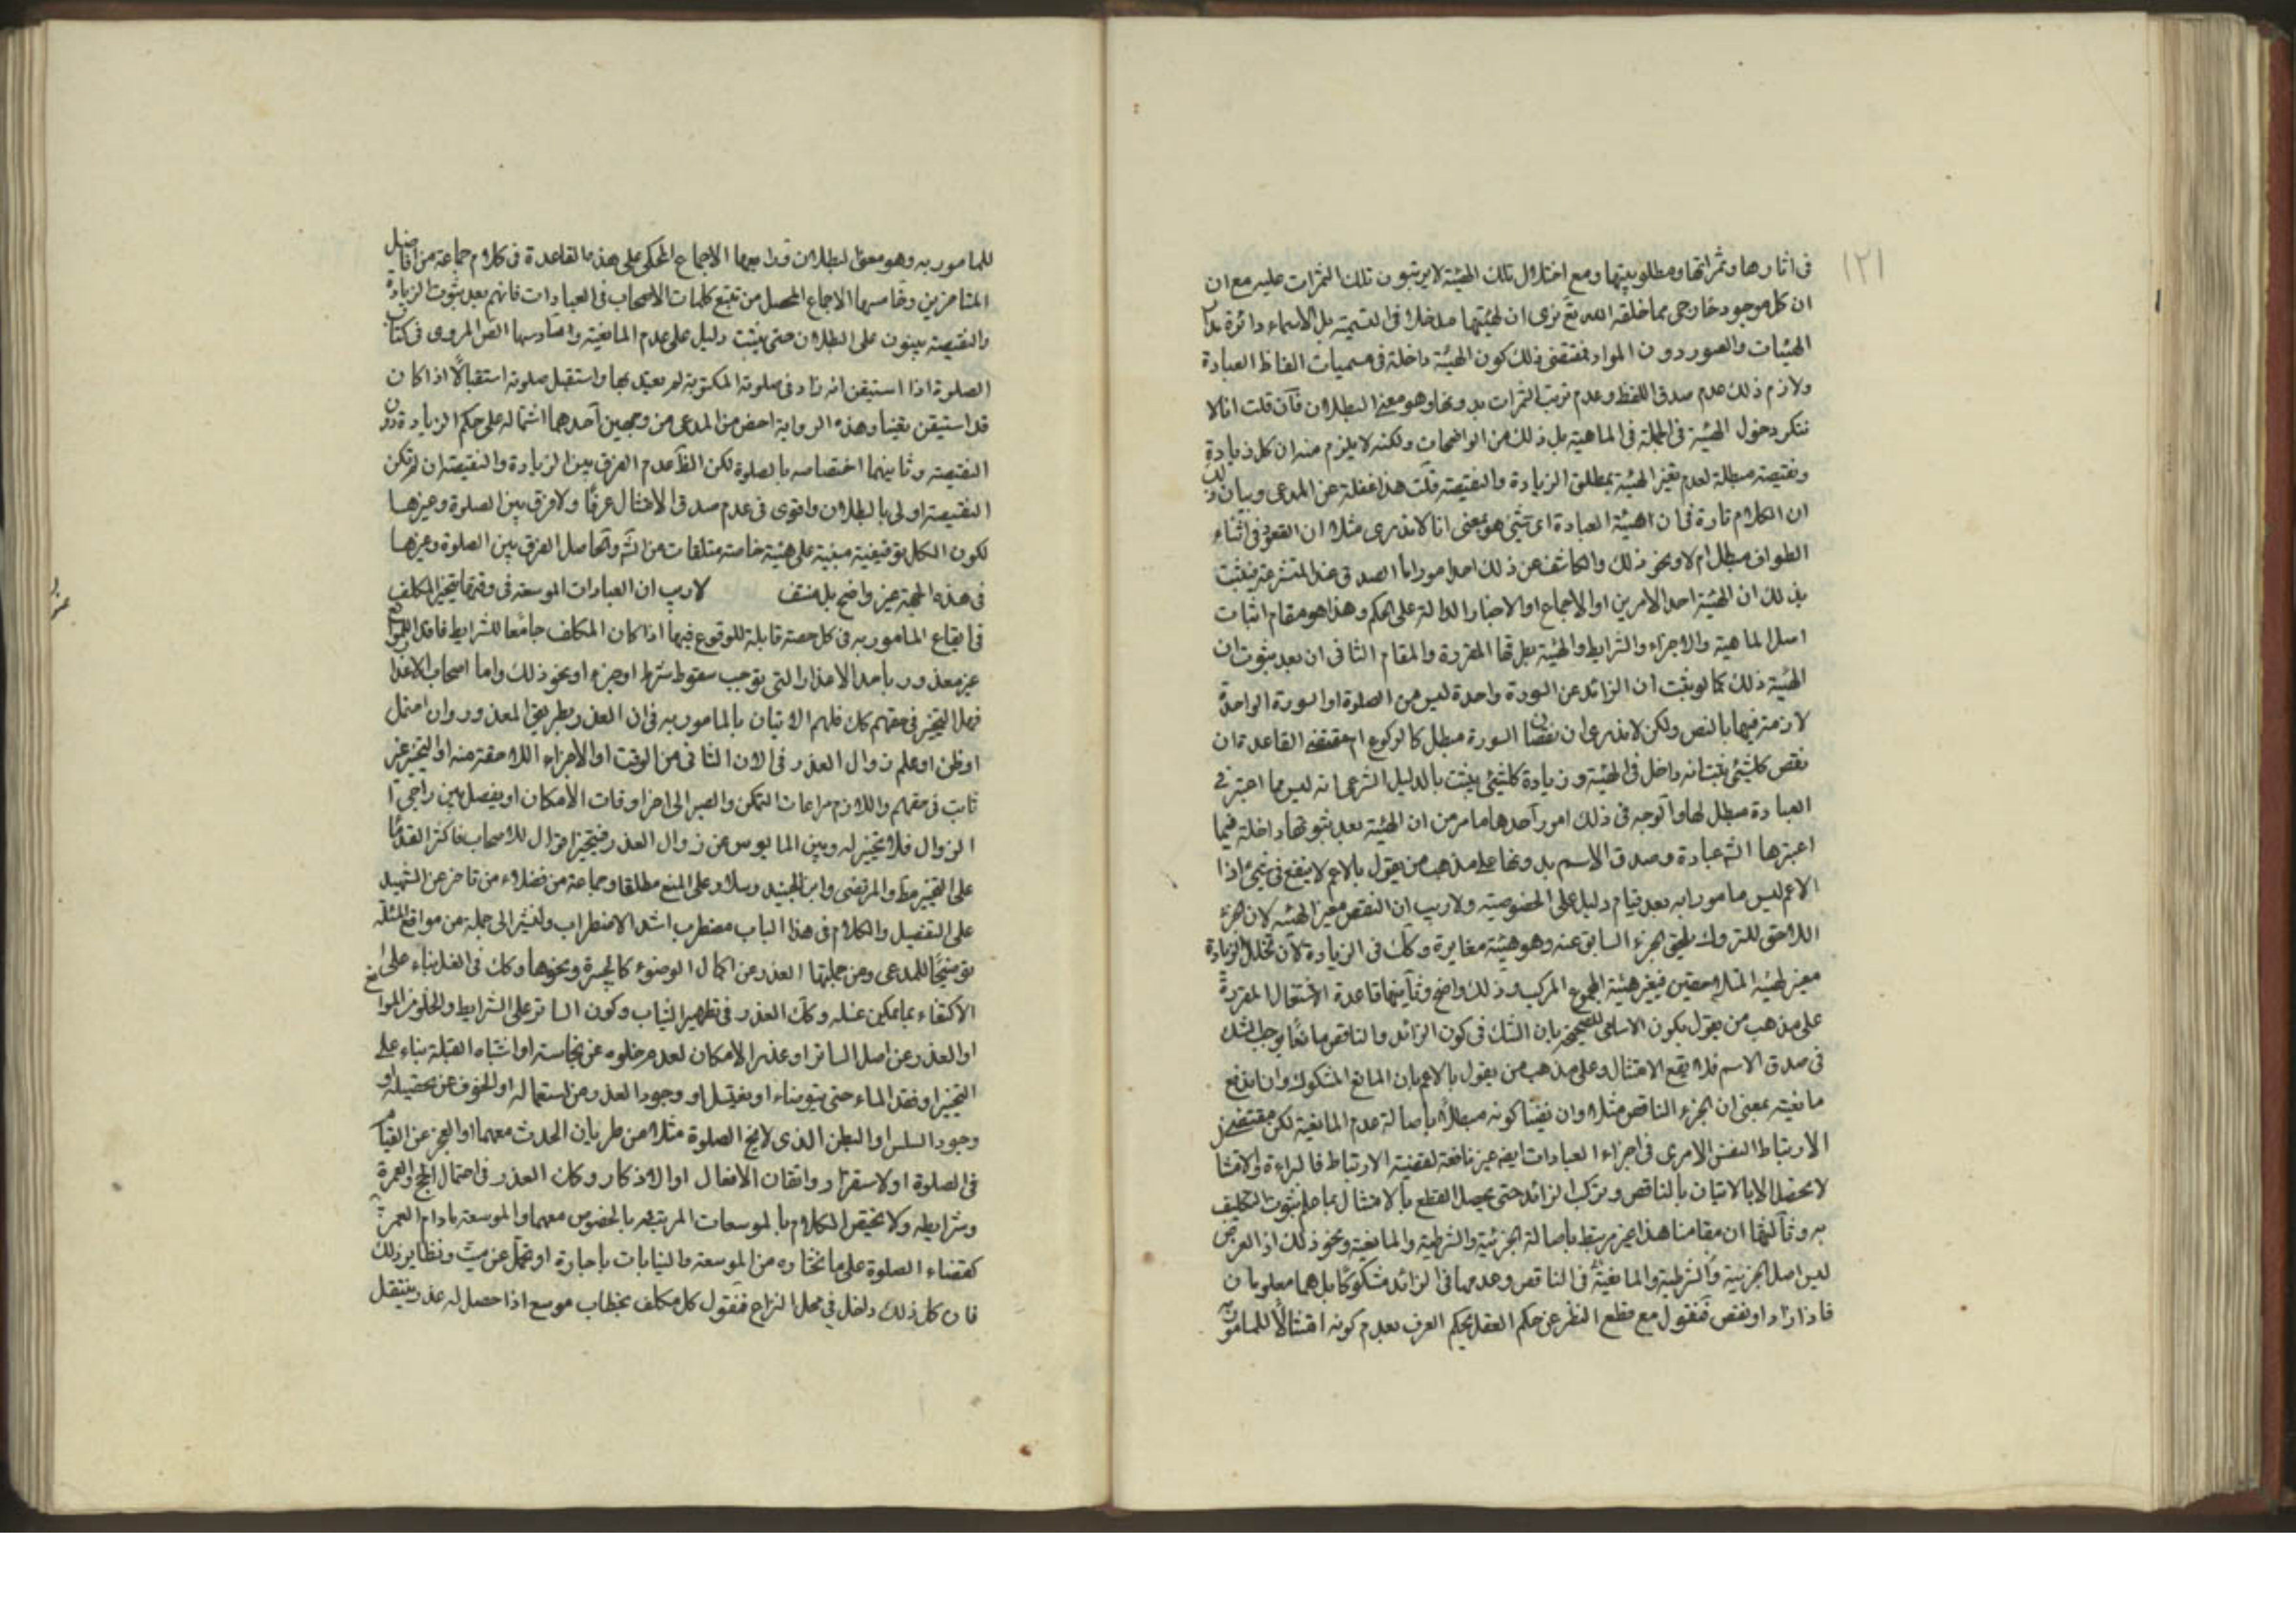 ١٢١
في اثارها وثمراتها ومطلوبيتها ومع اختلال تلك الهيئة لا يرتبون تلك الثمرات عليه مع ان
ان كل موجود خارجى مما خلقه الله تع نرى ان لهيئتها مدخلا فى التسمية بل الاسماء دائرة مدار
الهيئات والصور دون المواد فمقتضى ذلك كون الهيئة داخلة فى مسميات الفاظ العبادة
ولازم ذلك عدم صدق اللفظ وعدم ترتب الثمرات بدونها وهو معنى البطلان فان قلت انا لا
ننكر دخول الهيئة فى الجملة فى الماهية بل ذلك من الواضحات ولكنه لا يلزم منه ان كل زيادة
ونقيصة مبطلة لعدم تغير الهيئة بمطلق الزيادة والنقيصة قلت هذا غفلة عن المدعى وبيان ذلك
ان الكلام تارة فى ان هيئة العبادة اى شئ هو بمعنى انا لا ندرى مثلا ان القعود فى اثناء
الطواف مبطل ام لا ونحو ذلك والكاشف عن ذلك احد امور اما الصدق عند المتشرعة فيثبت
بذلك ان الهيئة احد الامرين او الاجماع او الاخبار الدالة على الحكم وهذا هو مقام اثبات
اصل الماهية والاجزاء والشرايط والهيئة بطرقها المقررة والمقام الثانى ان بعد ثبوت ان
الهيئة ذلك كما لو ثبت ان الزائد عن السورة واحدة ليس من الصلوة او السورة الواحدة
لازمة فيها بالنص ولكن لا ندرى ان نقصان السورة مبطل كالركوع ام مقتضى القاعدة ان
نقص كلشئ ثبت انه داخل فى الهيئة وزيادة كلشئ يثبت بالدليل الشرعى انه ليس مما اعتبر فى
العبادة مبطل لها والوجه فى ذلك امور احدها ما مر من ان الهيئة بعد ثبوتها داخلة فيما
اعتبرها الش عبادة وصدق الاسم بدونها على مذهب من يقول بالاعم لا ينفع فى شئ اذا
الاعم ليس مامورا به بعد قيام دليل على الخصوصية ولا ريب ان النقص مغير الهيئه لان جزء
اللاحق للمتروك يلحق الجزء السابق عنه وهو هيئة مغايرة وكك فى الزيادة لان تخلل الزيادة
مغير لهيئة المتلاصقين فيغير هيئة المجموع المركب وذلك واضح وثانيها قاعدة الاشتغال المقررة
على مذهب من يقول بكون الاسامى للصحيحة بان الشك فى كون الزائد والناقص مانعا يوجب الشك
فى صدق الاسم فلا يقع الامتثال وعلى مذهب من يقول بالاعم بان المانع المشكوك وان يدفع
مانعيته بمعنى ان الجزء الناقص مثلا وان نفينا كونه مبطلا باصالة عدم المانعية لكن مقتضى
الارتباط النفس الامرى فى اجزاء العبادات ايضه غير نافعة لقضية الارتباط فالبراءة
لا يحصل الا بالاتيان بالناقص وبترك الزائد حتى يحصل القطع بالامتثال بما علم ثبوت التكليف
به وثالثها ان مقامنا هذا غير مرتبط باصالة الجزئية والشرطية والمانعية ونحو ذلك اذ الغرض
ليس اصل الجزئية والشرطية والمانعية فى الناقص وعدمها فى الزائد مشكوكا بل هما معلومان
فاذا زاد او نقص فنقول مع قطع النظر عن حكم العقل يحكم العرف بعدم كونه امتثالا للمامور به
للمامور به وهو معنى البطلان ورابعها الاجماع المحكى على هذه القاعدة فى كلام جماعة من افاضل
المتاخرين وخامسها الاجماع المحصل من تتبع كلمات الاصحاب فى العبادات فانهم بعد ثبوت الزيادة
والنقيصة يبنون على البطلان حتى يثبت دليل على عدم المانعية وسادسها النص المروى فى كتاب
الصلوة اذا استيقن انه زاد فى صلوته المكتوبة لم يعتد بها واستقبل صلوته استقبالا اذا كان
قد استيقن يقينا وهذه الرواية اخص من المدعى من وجهين احدهما اشتماله على حكم الزيادة دون
النقيصة وثانيهما اختصاصه بالصلوة لكن الظ عدم الفرق بين الزيادة والنقيصة ان لم تكن
النقيصة اولى بالبطلان واقوى فى عدم صدق الامتثال عرفا ولا فرق بين الصلوة وغيرها
لكون الكل توقيفية مبنية على هيئة خاصة متلقات من الش وبالحاصل الفرق بين الصلوة وغيرها
فى هذه الجهة غير واضح بل منتف لا ريب ان العبادات الموسعة فى وقتها يتخير المكلف
فى ايقاع المامور به فى كل حصة قابلة للوقوع فيها اذا كان المكلف جامعا للشرايط فاقد الموانع
غير معذور باحد الاعذار التى توجب سقوط شرط او جزء او نحو ذلك واما اصحاب الاعذار
فهل التخيير فى حقهم كك فلهم الاتيان بالمامور به فى ان العذر وبطريق المعذور وان احتمل
او ظن او علم زوال العذر فى الان الثانى من الوقت او الاجزاء اللاحقة منه او التخيير غير
ثابت فى حقهم واللازم مراعات التمكن والصبر الى اخر اوقات الامكان او يفصل بين راجى
الزوال فلا تخيير له وبين المايوس عن زوال العذر فيتخير اقوال للاصحاب فاكثر القدماء
على التخيير مط والمرتضى وابن الجنيد وسلار على المنع مطلقا وجماعة من فضلاء من تاخر عن الشهيد
على التفصيل والكلام فى هذا الباب مضطرب اشد الاضطراب ولنشر الى جملة من مواقع المسئلة
توضيحا للمدعى ومن جملتها العذر عن اكمال الوضوء كالجبيرة ونحوها وكك فى الغسل بناء على
الاكتفاء بما يمكن غسله وكك العذر فى تطهير الثياب وكون الساتر على الشرايط والخلو من الموانع
او العذر عن اصل الساتر او عذر الامكان لعدم خلوه عن نجاسة او اشتباه القبلة بناء على
التخيير او فقد الماء حتى يتوضاء او يغتسل او وجود العذر من استعماله او الخوف عن تحصيله او
وجود السلس او البطن الذى لا يبيح الصلوة مثلا من طريان الحدث معهما او العجز عن القيام
فى الصلوة او لاستقرار واتقان الافعال او الاذكار وكان العذر فى احتمال الحج والعمرة
وشرايطه ولا يختص الكلام بالموسعات المرتبه بالخصوص معهما والموسعة مادام العمر
كقضاء الصلوة على ما نختاره من الموسعة والنيابات باجارة او تحمل عن ميت ونظاير ذلك
فان كل ذلك داخل فى محل النزاع فنقول كل مكلف بخطاب موسع اذا حصل له عذر ينتقل